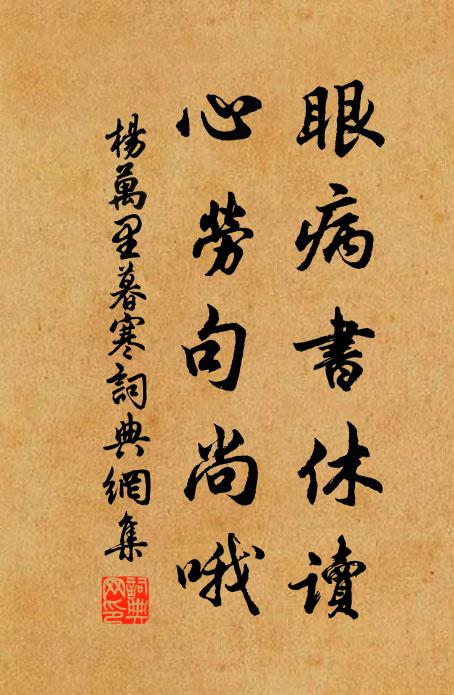 眼病書休讀
心勞句尚哦
楊萬里暮寒詞典網集
詞典網印